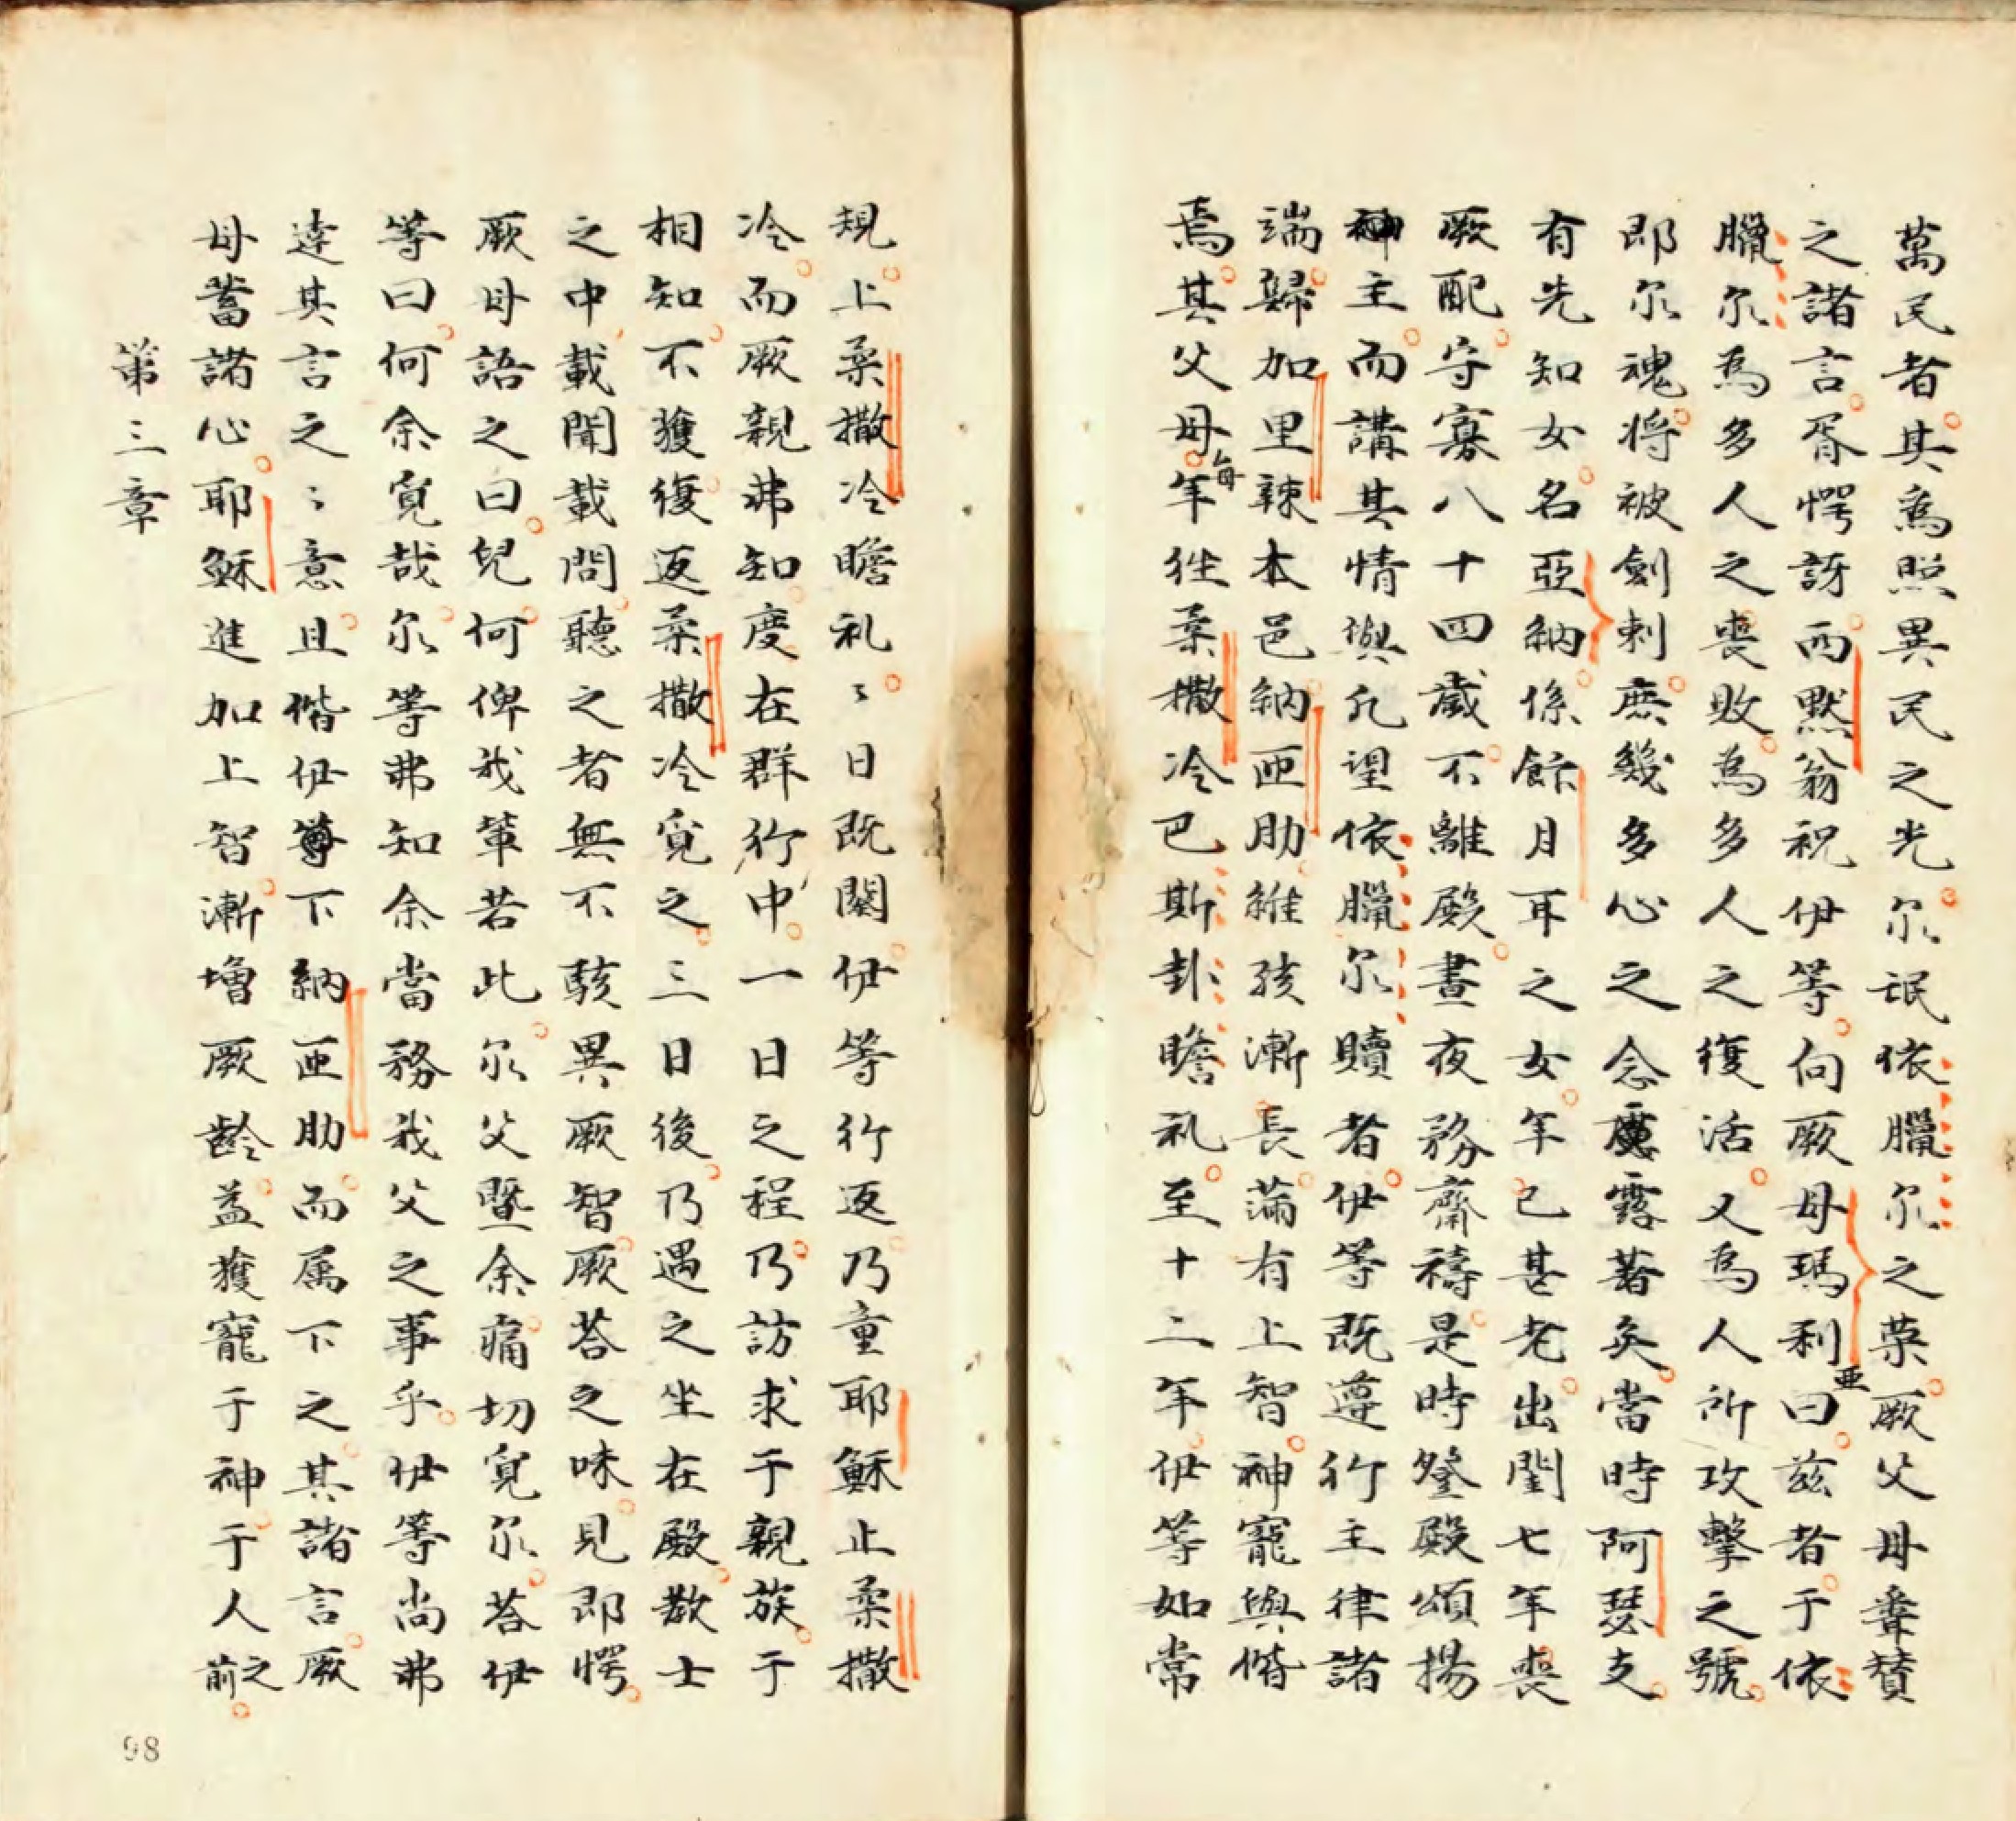 萬民者其為照異民之光尔氓依臘尔之荣厥父母奔賛
之諸言胥愕訝西默翁祝伊等向厥母瑪利亜曰兹者于依
臘尔為多人之喪敗為多人之復活又為人所攻擊之號
即尔魂将被劍刺庶幾多心之念慮露著矣當時阿瑟支
有先知女名亞納係餘月耳之女年已甚老出閨七年喪
厥配守寡八十四歲不離殿晝夜務齋禱是時登殿頌揚
神主而講其情與凡望依臘尔贖者伊等既遵行主律諸
端歸加里辣本邑納匝肋維孩漸長滿有上智神寵與偕
焉其父母每年徃柔撒冷巴斯卦瞻礼至十二年伊等如常
規上柔撒冷瞻礼〻日既闋伊等行返乃童耶穌止柔撒
冷而厥親弗知度在群行中一日之程乃訪求于親族于
相知不獲復返柔撒冷覓之三日後乃遇之坐在殿教士
之中載聞載問聽之者無不駭異厥智厥荅之味見即愕
厥母語之曰兒何俾我輩若此尔父暨余痛切覓尔荅伊
等曰何余覓哉尔等弗知余當務我父之事乎伊等尚弗
達其言之〻意且偕伊等下納匝肋而属下之其諸言厥
母蓄諸心耶穌進加上智漸增厥齡益獲寵于神于人之前
第三章
98